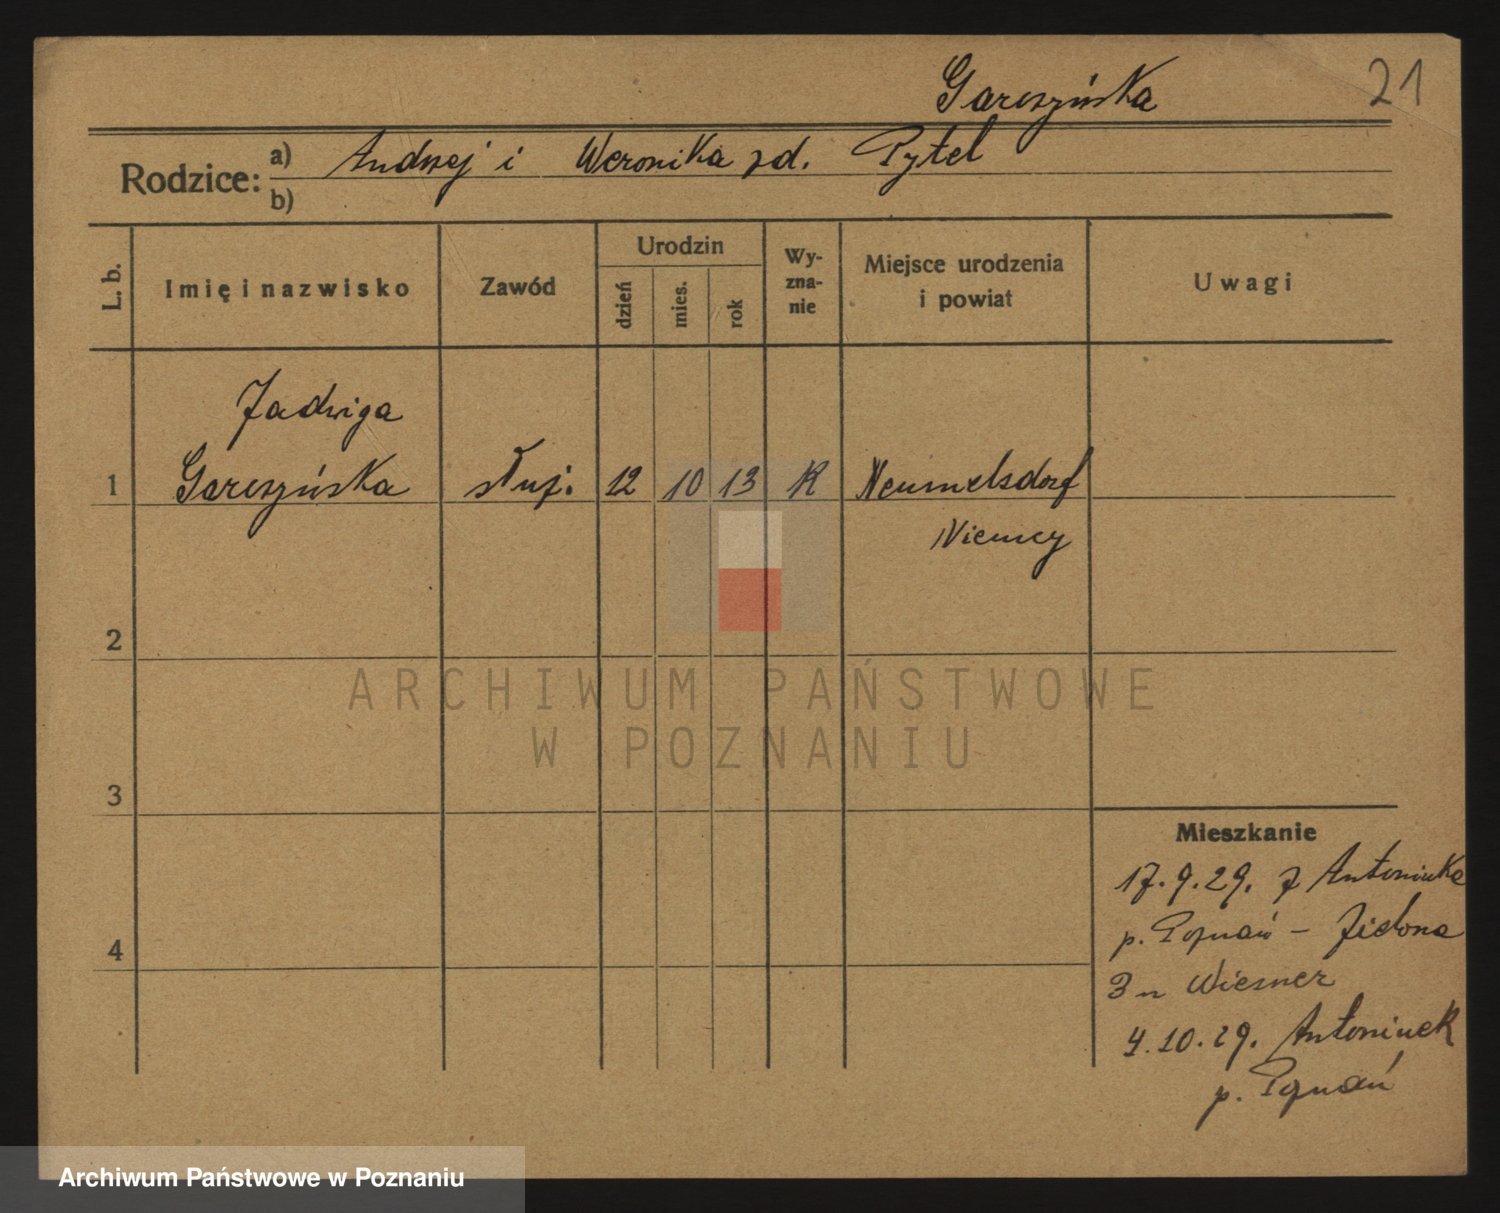 Garszyńska 21
Rodzice: a) Andrzej i Weronika zd. Pytel
b)
L. b. Imię i nazwisko Zawód Urodzin dzień mies. rok Wyzna-nie Miejsce urodzenia i powiat Uwagi
Jadwiga
1 Garszyńska służ. 12 10 13 R
Niemcy
2
ARCHIWUM PAŃSTWOWE
W POZNANIU
3
Mieszkanie
17.9.29. z Antoninka
p. Poznań – Zielona
3 u Wiesner
4
4.10.29. Antoninek
p. Poznań
Archiwum Państwowe w Poznaniu